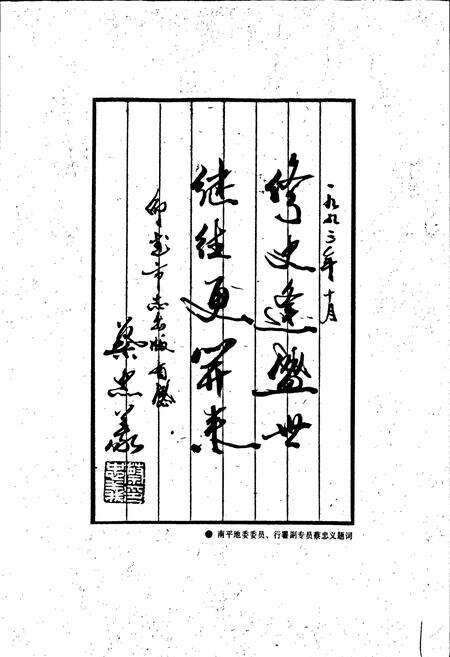 一九九三年十月
修史逢盛世
继往更開来
邵武市志出版有感
蔡忠義
● 南平地委委员、行署副专员蔡忠义题词